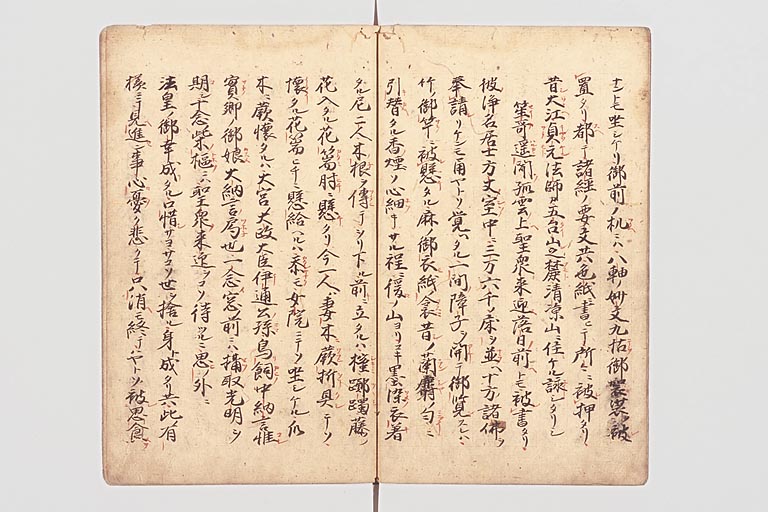 坐シケリ御前ノ机ニハ八軸ノ妙文九帖御書被
置タリ都テ諸經ノ要文共色紙ニ書ヒテ所々ニ被押タリ
昔大江貞元法師カ五台山之麓清凉山ニ住ケル詠シタリシ
笙哥遥聞孤雲上聖衆来迎落日前トモ被書タリ
彼浄名居士方丈室中ニ三万六千ノ床ヲ並ヘ十方諸佛ヲ
奉請リケンモ角ヤトソ覚ヘタル一間障子ヲ開テ御覧スレハ
竹ノ御竿ニ被懸タル麻ノ御衣紙ノ衾昔ノ蘭麝ノ匂ニ
引替タル香煙ノ心細キサル程ニ後ノ山ヨリコキ墨染衣着
タル尼二人木根ヲ傳テシリ下ル前ニ立タルハ樒躑躅藤ノ
花入タル花筥肘ニ懸タリ今一人ハ妻木ニ蕨折具テソ
懐タル花筥ヒチニ懸給ヘルハ忝モ女院ニテソ坐シケル爪
木ニ蕨懐タルハ大宮大政大臣伊通公孫鳥飼中納言惟
實卿御娘大納言局也一念窓前ニハ攝取光明ヲ
期シ十念柴樞ニハ聖衆来迎ヲコソ待ツルニ思ノ外ニ
法皇ノ御幸成タル口惜サヨサコソ世ヲ捨ル身ト成タリ共此有
様ニテ見進ン事心憂ク悲クテ只ハ消モ終テハヤトソ被思食